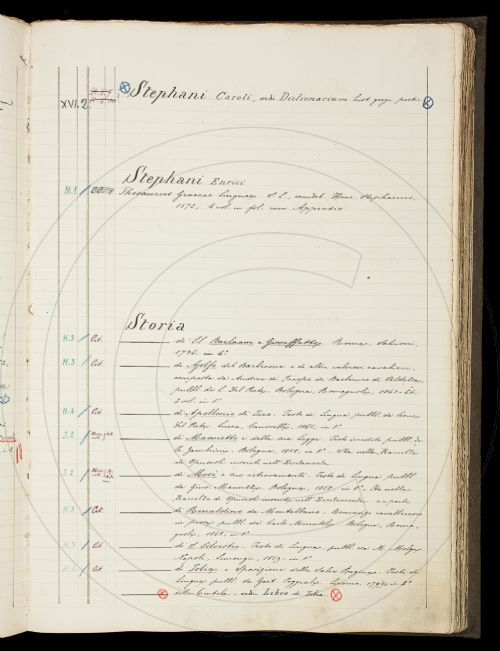 XVI. 2. Stephani Caroli, vedi Dictionarium hist. geogr. poetic.
Stephani Enrici
N. 1 Thesaurus Graecae linguae. S. L., excudeb. Henr. Stephanus,
1572, 4 vol. in fol. cum Appendice
Storia
H. 3 Cit. di SS. Barlaam e Giosaffatte. Roma, Salvioni,
1734, in 4°
H. 3 Cit. di Ajolfo del Barbicone e di altri valorosi cavalieri,
composta da Andrea di Jacopo da Barberino di Valdelsa,
pubbl. da L. Del Prete. Bologna, Romagnoli, 1863-64.
2 vol. in 8°
H. 4 Cit. di Apollonio di Tiro. Testo di Lingua pubbl. da Leone
Del Prete. Lucca, Canovetti, 1861. in 8°
J. 2 di Maometto e della sua Legge. Testo inedito pubbl. da
Bologna, 1858, in 8°. Sta nella Raccolta
di Opuscoli inseriti nell'Eccitamento.
J. 2 di Mosè e suo ritrovamento. Testo di Lingua pubbl.
da Bologna, 1858. in 8°. Sta nella
Raccolta di Opuscoli inseriti nell'Eccitamento
H. 3 Cit. di Rinaldino da Montalbano. Romanzo cavalleresco
in prosa pubbl. da Carlo Minutoli. Bologna, Roma-
gnoli, 1865. in 8°
H. 3 Cit. di S. Silvestro. Testo di Lingua pubbl. da M. Melga
Napoli, 1859. in 8°
H. 4 Cit. di Tobia e Sposizione della Salve Regina. Testo di
Lingua pubbl. da Gaet. Poggiali. Livorno, 1799. in 8°
della Cintola - vedi Libro di Tobia.